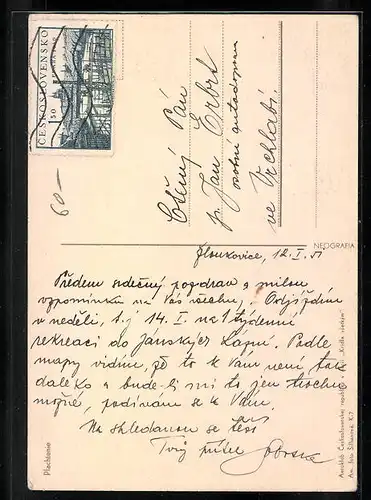 ČESKOSLOVENSKO
50
60 —
Ctěný Pán
p. Jan Erbrt
osobní autodoprava
ve Vrchlabí.
NEOGRAFIA
12. I. 51
Předem srdečný pozdrav a milou
vzpomínku na Vás všechny. Odjíždím
v neděli, t. j. 14. I. na 1 týdenní
rekreaci do Janských Lázní. Podle
mapy vidím, že to k Vám není tak
daleko a bude-li mi to jen trochu
možné, podívám se k Vám.
Na shledanou se těší
Tvůj
Plachtenie
Aeroklub Československej republiky